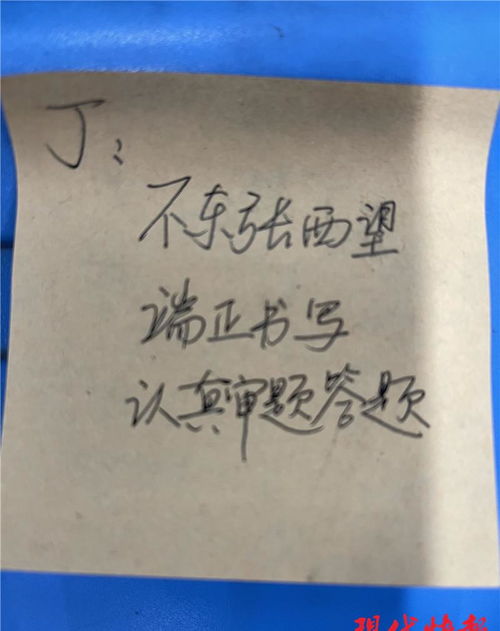 丁:
不东张西望
端正书写
认真审题答题
现代快报